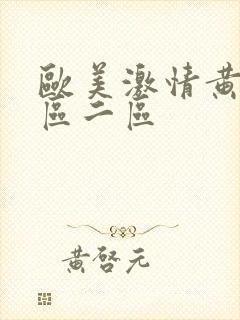 歐美激情黃
區二區
黃啓元